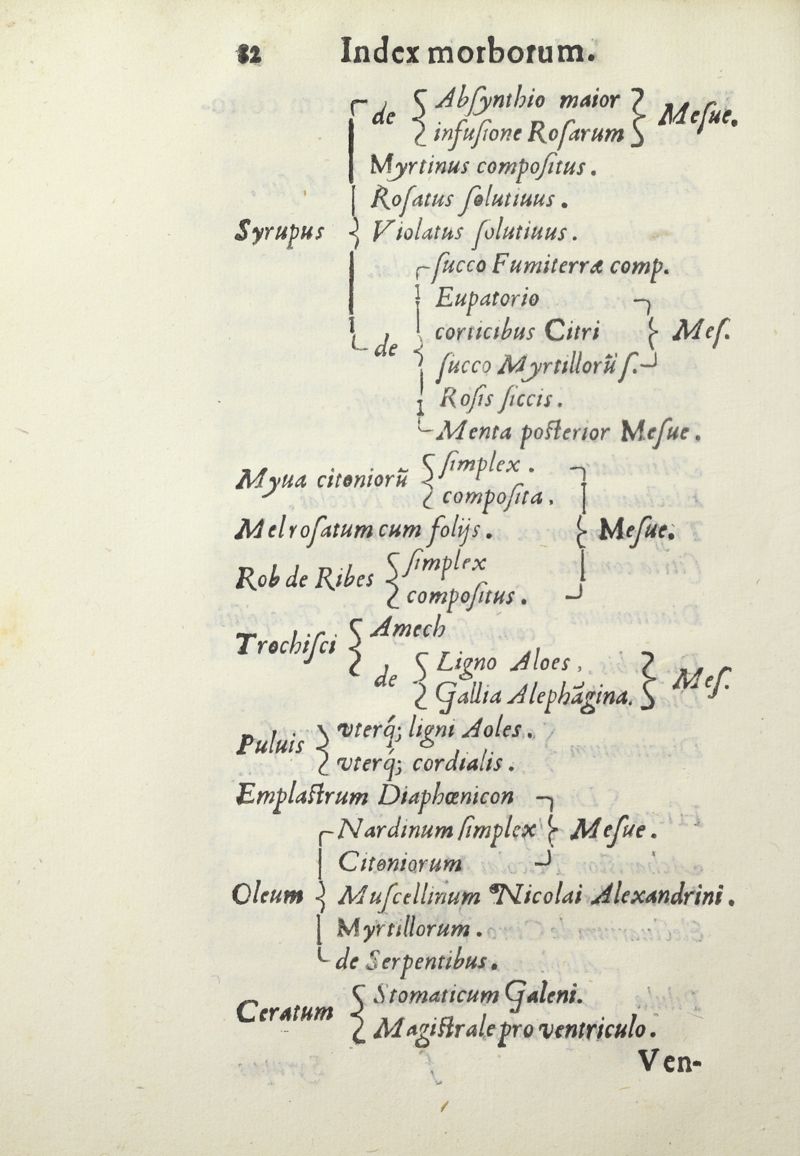 82 Index morborum.
de { Abſynthio maior
infuſione Roſarum } Meſue.
Myrtinus compoſitus.
Roſatus ſolutiuus.
Syrupus { Violatus ſolutiuus.
ſucco Fumiterræ comp.
Eupatorio
de { corticibus Citri } Meſ.
ſucco Myrtillorũ ſ.
Roſis ſiccis.
Menta poſterior Meſue.
Myua citoniorũ { ſimplex.
compoſita.
Mel roſatum cum folijs. } Meſue.
Rob de Ribes { ſimplex
compoſitus.
Trochiſci { Amech
de { Ligno Aloes,
Gallia Alephãgina. } Meſ.
Puluis { vterq́; ligni Aoles.
vterq́; cordialis.
Emplaſtrum Diaphœnicon
Nardinum ſimplex } Meſue.
Citoniorum
Oleum { Muſcellinum Nicolai Alexandrini.
Myrtillorum.
de Serpentibus.
Ceratum { Stomaticum Galeni.
Magiſtrale pro ventriculo.
Ven-